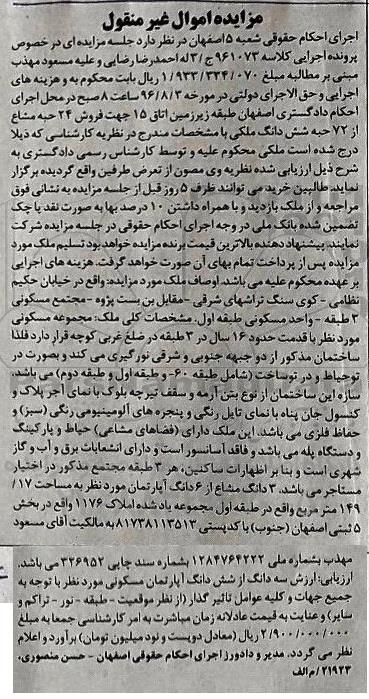 مزایده اموال غیر منقول
اجرای احکام حقوقی شعبه ۵ اصفهان در نظر دارد جلسه مزایده ای در خصوص
پرونده اجرایی کلاسه ۹۶۱۰۷۳ ج/۳ له احمدرضا رضایی و علیه مسعود مهذب
مبنی بر مطالبه مبلغ ۱/۹۳۳/۳۳۴/۰۷۰ ریال بابت محکوم به و هزینه های
اجرایی و حق الاجرای دولتی در مورخه ۹۶/۸/۳ ساعت ۸ صبح در محل اجرای
احکام دادگستری اصفهان طبقه زیرزمین اتاق ۱۵ جهت فروش ۲۴ حبه مشاع
از ۷۲ حبه شش دانگ ملکی با مشخصات مندرج در نظریه کارشناسی که ذیلا
درج شده است ملکی محکوم علیه و توسط کارشناس رسمی دادگستری به
شرح ذیل ارزیابی شده نظریه وی مصون از تعرض طرفین واقع گردیده برگزار
نماید. طالبین خرید می توانند ظرف ۵ روز قبل از جلسه مزایده به نشانی فوق
مراجعه و از ملک بازدید و با همراه داشتن ۱۰ درصد بها به صورت نقد یا چک
تضمین شده بانک ملی در وجه اجرای احکام حقوقی در جلسه مزایده شرکت
نمایند. پیشنهاد دهنده بالاترین قیمت برنده مزایده خواهد بود تسلیم ملک مورد
مزایده پس از پرداخت تمام بهای آن صورت خواهد گرفت. هزینه های اجرایی
بر عهده محکوم علیه می باشد. اوصاف ملک مورد مزایده: واقع در خیابان حکیم
نظامی - کوی سنگ تراشهای شرقی - مقابل بن بست پژوه - مجتمع مسکونی
۳ طبقه - واحد مسکونی طبقه اول. مشخصات کلی ملک: مجموعه مسکونی
مورد نظر با قدمت حدود ۱۶ سال در ۳ طبقه در ضلع غربی کوچه قرار دارد فلذا
ساختمان مذکور از دو جبهه جنوبی و شرقی نورگیری می کند و بصورت در
توحیاط و در نوساخت (شامل طبقه ۶۰- و طبقه اول و طبقه دوم) می باشد.
سازه این ساختمان از نوع بتن آرمه و سقف تیرچه بلوک با نمای آجر پلاک و
کنسول جان پناه با نمای تایل رنگی و پنجره های آلومینیومی رنگی (سبز) و
حفاظ فلزی می باشد. این ملک دارای (فضاهای مشاعی) حیاط و پارکینگ
و دستگاه پله می باشد و فاقد آسانسور است و دارای انشعابات برق و آب و گاز
شهری است و بنا بر اظهارات ساکنین، هر ۳ طبقه مجتمع مذکور در اختیار
مستاجر می باشد. ۳ دانگ مشاع از ۶ دانگ آپارتمان مورد نظر به مساحت ۱۷/
۱۴۹ متر مربع واقع در طبقه اول مجموعه یاد شده املاک ۱۱۷۶ واقع در بخش
۵ ثبتی اصفهان (جنوب) با کدپستی ۸۱۷۳۸۱۱۳۵۱۳ به مالکیت آقای مسعود
مهذب بشماره ملی ۱۲۸۴۷۶۴۲۲۲ بشماره سند چاپی ۳۲۶۹۵۲ می باشد.
ارزیابی: ارزش سه دانگ از شش دانگ آپارتمان مسکونی مورد نظر با توجه به
جمیع جهات و کلیه عوامل تاثیر گذار (از نظر موقعیت - طبقه - نور - تراکم و
سایر) و عنایت به قیمت عادلانه زمان مباشرت به امر کارشناسی جمعا به مبلغ
۲/۹۰۰/۰۰۰/۰۰۰ ریال (معادل دویست و نود میلیون تومان) برآورد و اعلام
نظر می گردد. مدیر و دادورز اجرای احکام حقوقی اصفهان - حسن منصوری،
۲۱۹۲۳/ م الف